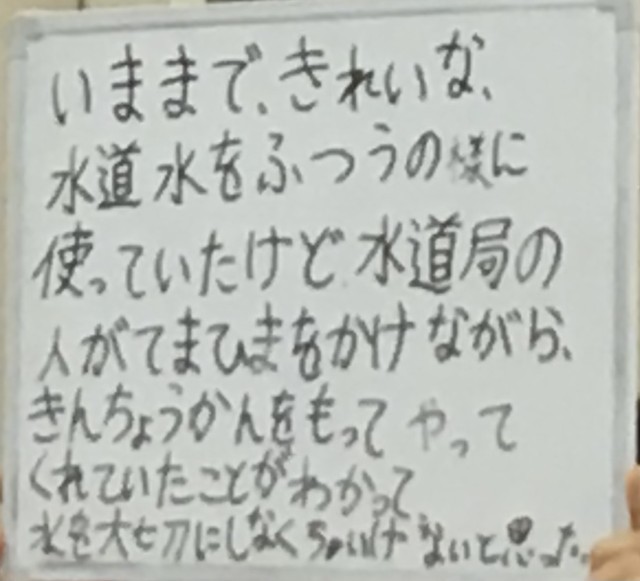 いままで、きれいな、
水道水をふつうの様に
使っていたけど水道局の
人がてまひまをかけながら、
きんちょうかんをもってやって
くれていたことがわかって
水を大切にしなくちゃいけないと思った。